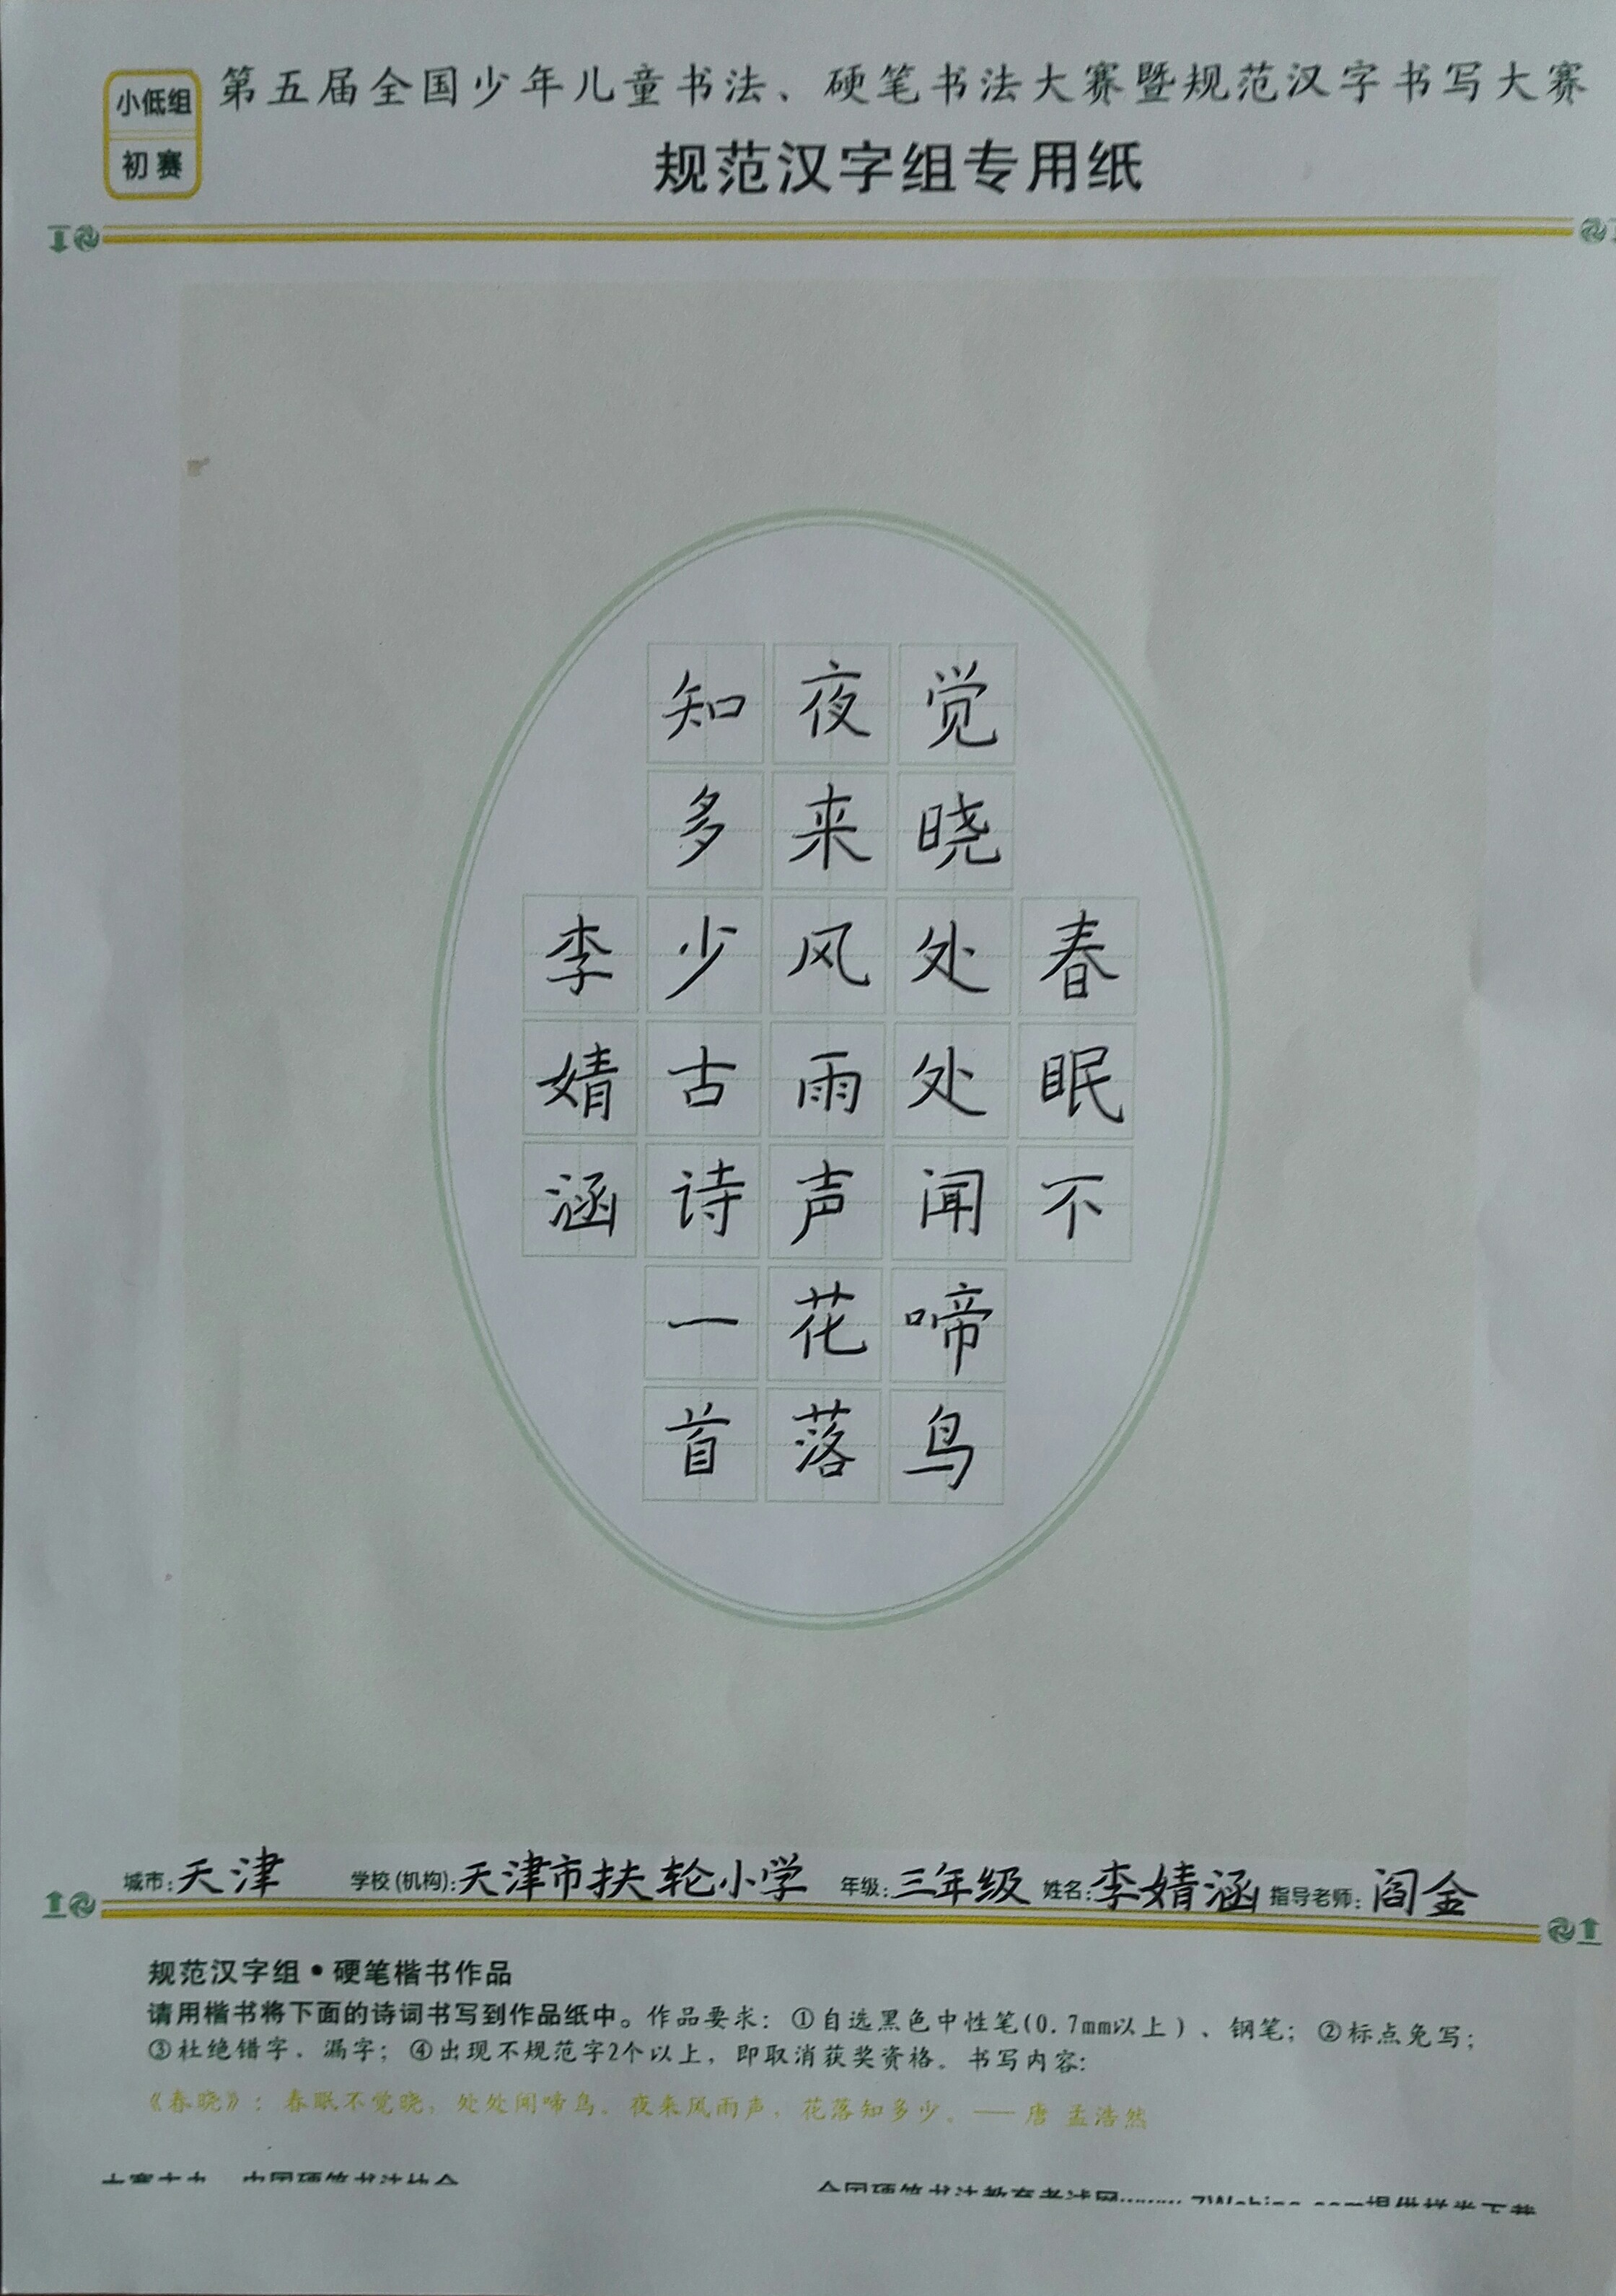 小低组
初赛
第五届全国少年儿童书法、硬笔书法大赛暨规范汉字书写大赛
规范汉字组专用纸
春眠不
觉晓处处闻啼鸟
夜来风雨声花落
知多少古诗一首
李婧涵
城市:天津 学校(机构):天津市扶轮小学 年级:三年级 姓名:李婧涵 指导老师:阎金
规范汉字组•硬笔楷书作品
请用楷书将下面的诗词书写到作品纸中。作品要求:①自选黑色中性笔(0.7mm以上)、钢笔;②标点免写;
③杜绝错字、漏字;④出现不规范字2个以上,即取消获奖资格。书写内容:
《春晓》:春眠不觉晓,处处闻啼鸟。夜来风雨声,花落知多少。——唐 孟浩然